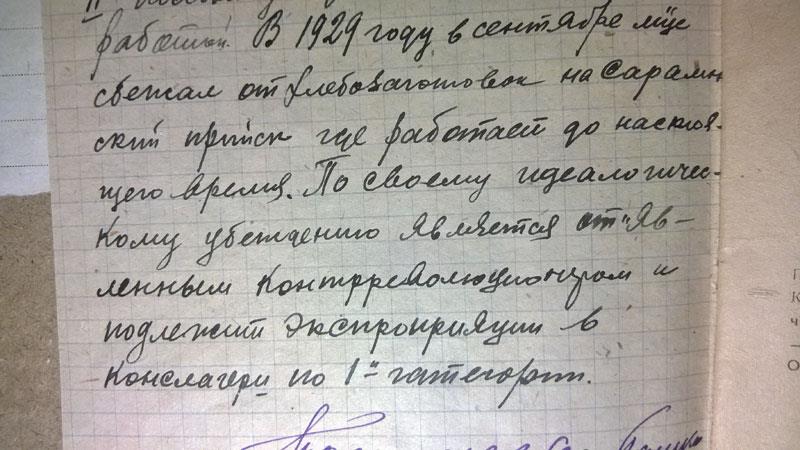 работой. В 1929 году в сентябре м-це
сбежал от хлебозаготовок на Сарамин
ский прииск где работает до настоя-
щего время. По своему идеалогичес-
кому убеждению является от"яв-
ленным контрреволюционером и
подлежит экспроприяции в
Конслагери по 1й категории.